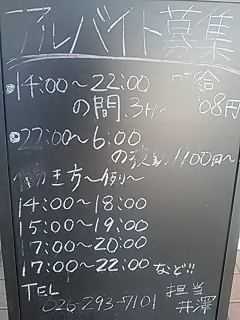 アルバイト募集
●14:00〜22:00 時給
の間、3H〜 08円
●22:00〜6:00
の 1100円〜
働き方〜例〜
14:00〜18:00
15:00〜19:00
17:00〜20:00
17:00〜22:00 など!!
TEL 担当
026-293-7101 井澤